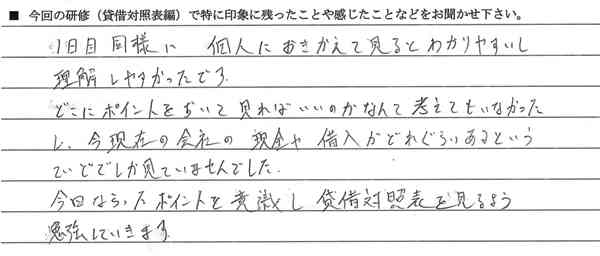 ■ 今回の研修（貸借対照表編）で特に印象に残ったことや感じたことなどをお聞かせ下さい。
1日目同様に 個人におきかえて見るとわかりやすいし
理解しやすかったです
どこにポイントをおいて見ればいいのかなんて考えてもいなかった
し、今現在の会社の 現金や 借入がどれぐらいあるという
ていどでしか見ていませんでした.
今回ならったポイントを意識し 貸借対照表を見るよう
勉強していきます